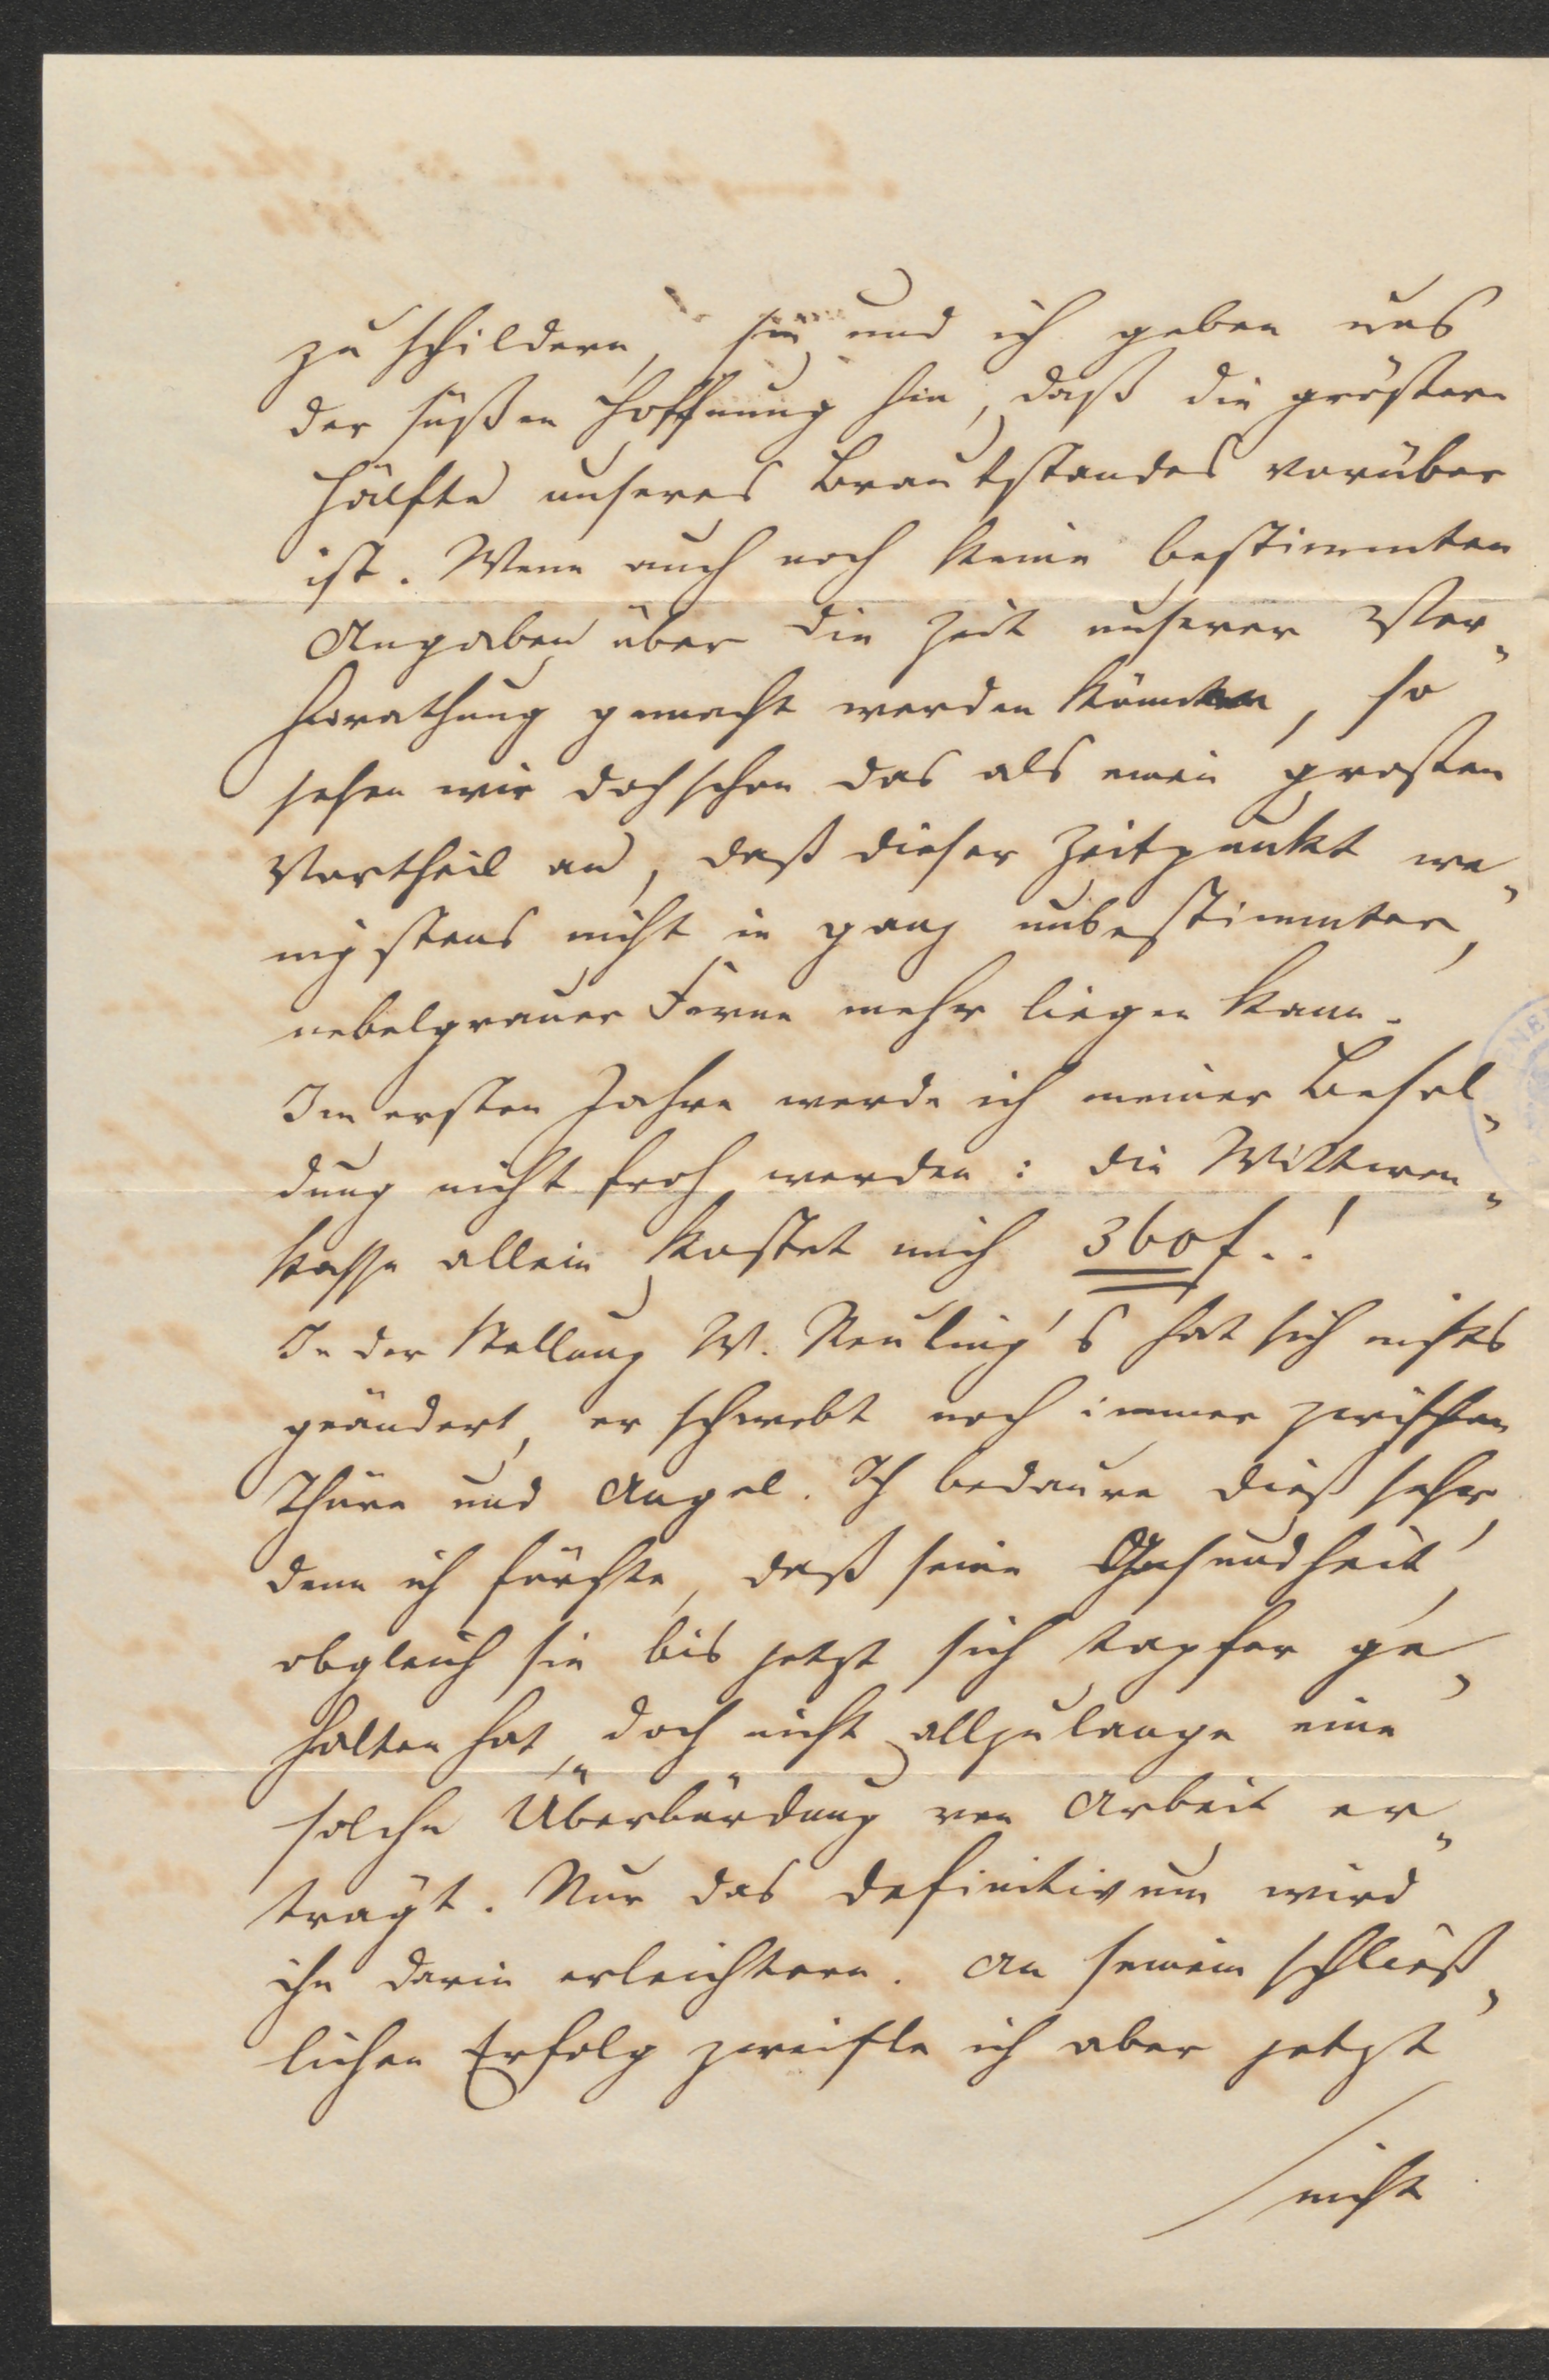 zu schildern, sie und ich geben uns
der süßen Hoffnung hin, daß die größere
Hälfte unseres Brautstandes vorüber
ist. Wenn auch noch keine bestimmten
Angaben über die Zeit unserer Ver-
heirathung gemacht werden können, so
sehen wir doch schon das als einen großen
Vortheil an, daß dieser Zeitpunkt we-
nigstens nicht in ganz unbestimmter,
nebelgrauer Ferne mehr liegen kann.
Im ersten Jahre werde ich meiner Besol-
dung nicht froh werden: die Wittwen-
kasse allein kostet mich 360 f.!
In der Stellung W. Neuling's hat sich nichts
geändert, er schwebt noch immer zwischen
Thüre und Angel. Ich bedaure dieß sehr,
denn ich fürchte, daß seine Gesundheit,
obgleich sie bis jetzt sich tapfer ge-
halten hat, doch nicht allzulange eine
solche Überbürdung von Arbeit er-
trägt. Nur das Definitivum wird
ihn darin erleichtern. An seinem schließ-
lichen Erfolg zweifle ich aber jetzt
nicht